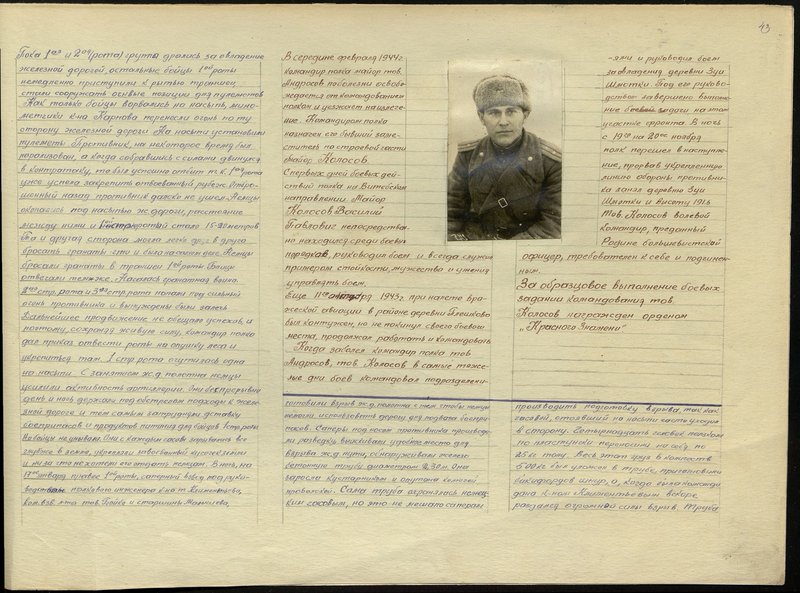 43
Пока 1ая и 2ая (рота) группы дрались за овладение
железной дорогой, остальные бойцы 1ой роты
немедленно приступили к рытью траншей,
стали сооружать огневые позиции для пулеметов
Как только бойцы ворвались на насыпь, мино-
метчики к-на Карпова перенесли огонь по ту
сторону железной дороги. На насыпи установили
пулеметы. Противник, на некоторое время был
парализован, а когда собравшись с силами двинулся
в контратаку, то был успешно отбит т.к. 1ая рота
уже успела закрепить отвоеванный рубеж. Отбро-
шенный назад противник далеко не ушел. Немцы
окопались под насыпью ж. дороги, расстояние
между ними и 1ой стр. ротой стало 15-20 метров
Та и другая сторона могла легко друг в друга
бросать гранаты.
бросали гранаты в траншеи 1ой роты. Бойцы
отвечали тем же. Началась гранатная война.
2ая стр. рота и 3ая стр. рота попали под сильный
огонь противника и вынуждены были залечь
Дальнейшее продвижение не обещало успехов, и
поэтому, сохраняя живую силу, командир полка
дал приказ отвести роты на опушку леса и
укрепиться там. 1 стр. рота очутилась одна
на насыпи. С занятием ж.д. полотна немцы
усилили активность артиллерии. Они беспрерывно
день и ночь держали под обстрелом подходы к желез-
ной дороге и тем самым затрудняли доставку
боеприпасов и продуктов питания для бойцов 1ой роты
Но бойцы не унывали. Они с каждым часом зарывались все
глубже в землю, укрепляли завоеванный кусочек земли
и ни за что не хотели его отдать немцам. В ночь на
17ое января прибыл 1ой роты, саперный взвод под руко-
водством полкового инженера к-на т. Климентьева,
ком. взв. л-та тов. Бойко и старшины Мамаева,
В середине февраля 1944г.
командир полка майор тов.
Андросов по болезни освобо-
ждается от командования
полком и уезжает на излече-
ние. Командиром полка
назначен его бывший заме-
ститель по строевой части
майор Колосов.
С первых дней боевых дей-
ствий полка на Витебском
направлении. Майор
Колосов Василий
Павлович непосредствен-
но находился среди боевых
порядков, руководил боем и всегда служил
примером стойкости, мужества и умения
управлять боем.
Еще 11го октября 1943г. при налете вра-
жеской авиации в районе деревни Плешково
был контужен, но не покинул своего боевого
места, продолжал работать и командовать
Когда заболел командир полка тов
Андросов, тов. Колосов в самые тяже-
лые дни боев командовал подразделени-
-ями и руководил боем
за овладения деревни Зуи
Шнитки. Под его руково-
дством завершено выполне-
ние боевой задачи на этом
участке фронта. В ночь
с 19го на 20ое ноября
полк перешел в наступле-
ние, прорвав укрепленную
линию обороны противни-
ка занял деревню Зуи
Шнитки и высоту 191,6
Тов. Колосов волевой
командир, преданный
Родине большевистской
офицер, требователен к себе и подчинен-
ным.
За образцовое выполнение боевых
задании командования тов.
Колосов награжден орденом
„Красного Знамени"
шновили взрыв ж.д. полотна с тем чтобы немцы
не могли использовать дорогу для подвоза боепри-
пасов. Саперы под носом противника производи-
ли разведку выискивали удобное место для
взрыва ж.д. пути, обнаружили железо-
бетонную трубу диаметром 2,30м. Она
заросла кустарником и опутана колючей
проволокой. Сама труба охранялась немец-
ким часовым, но это не мешало саперам
производить подготовку взрыва, так как
часовой, стоявший на насыпи часто уходил
в сторону. Четырнадцать человек ползком
по пластунски переносили на себе, по
25 кг. толу. Весь этот груз в количестве
500 кг был уложен в трубе, приготовили
бикфордов шнур, а, когда была команда
дана к-ном Климентьевым вскоре
раздался огромной силы взрыв. Труба